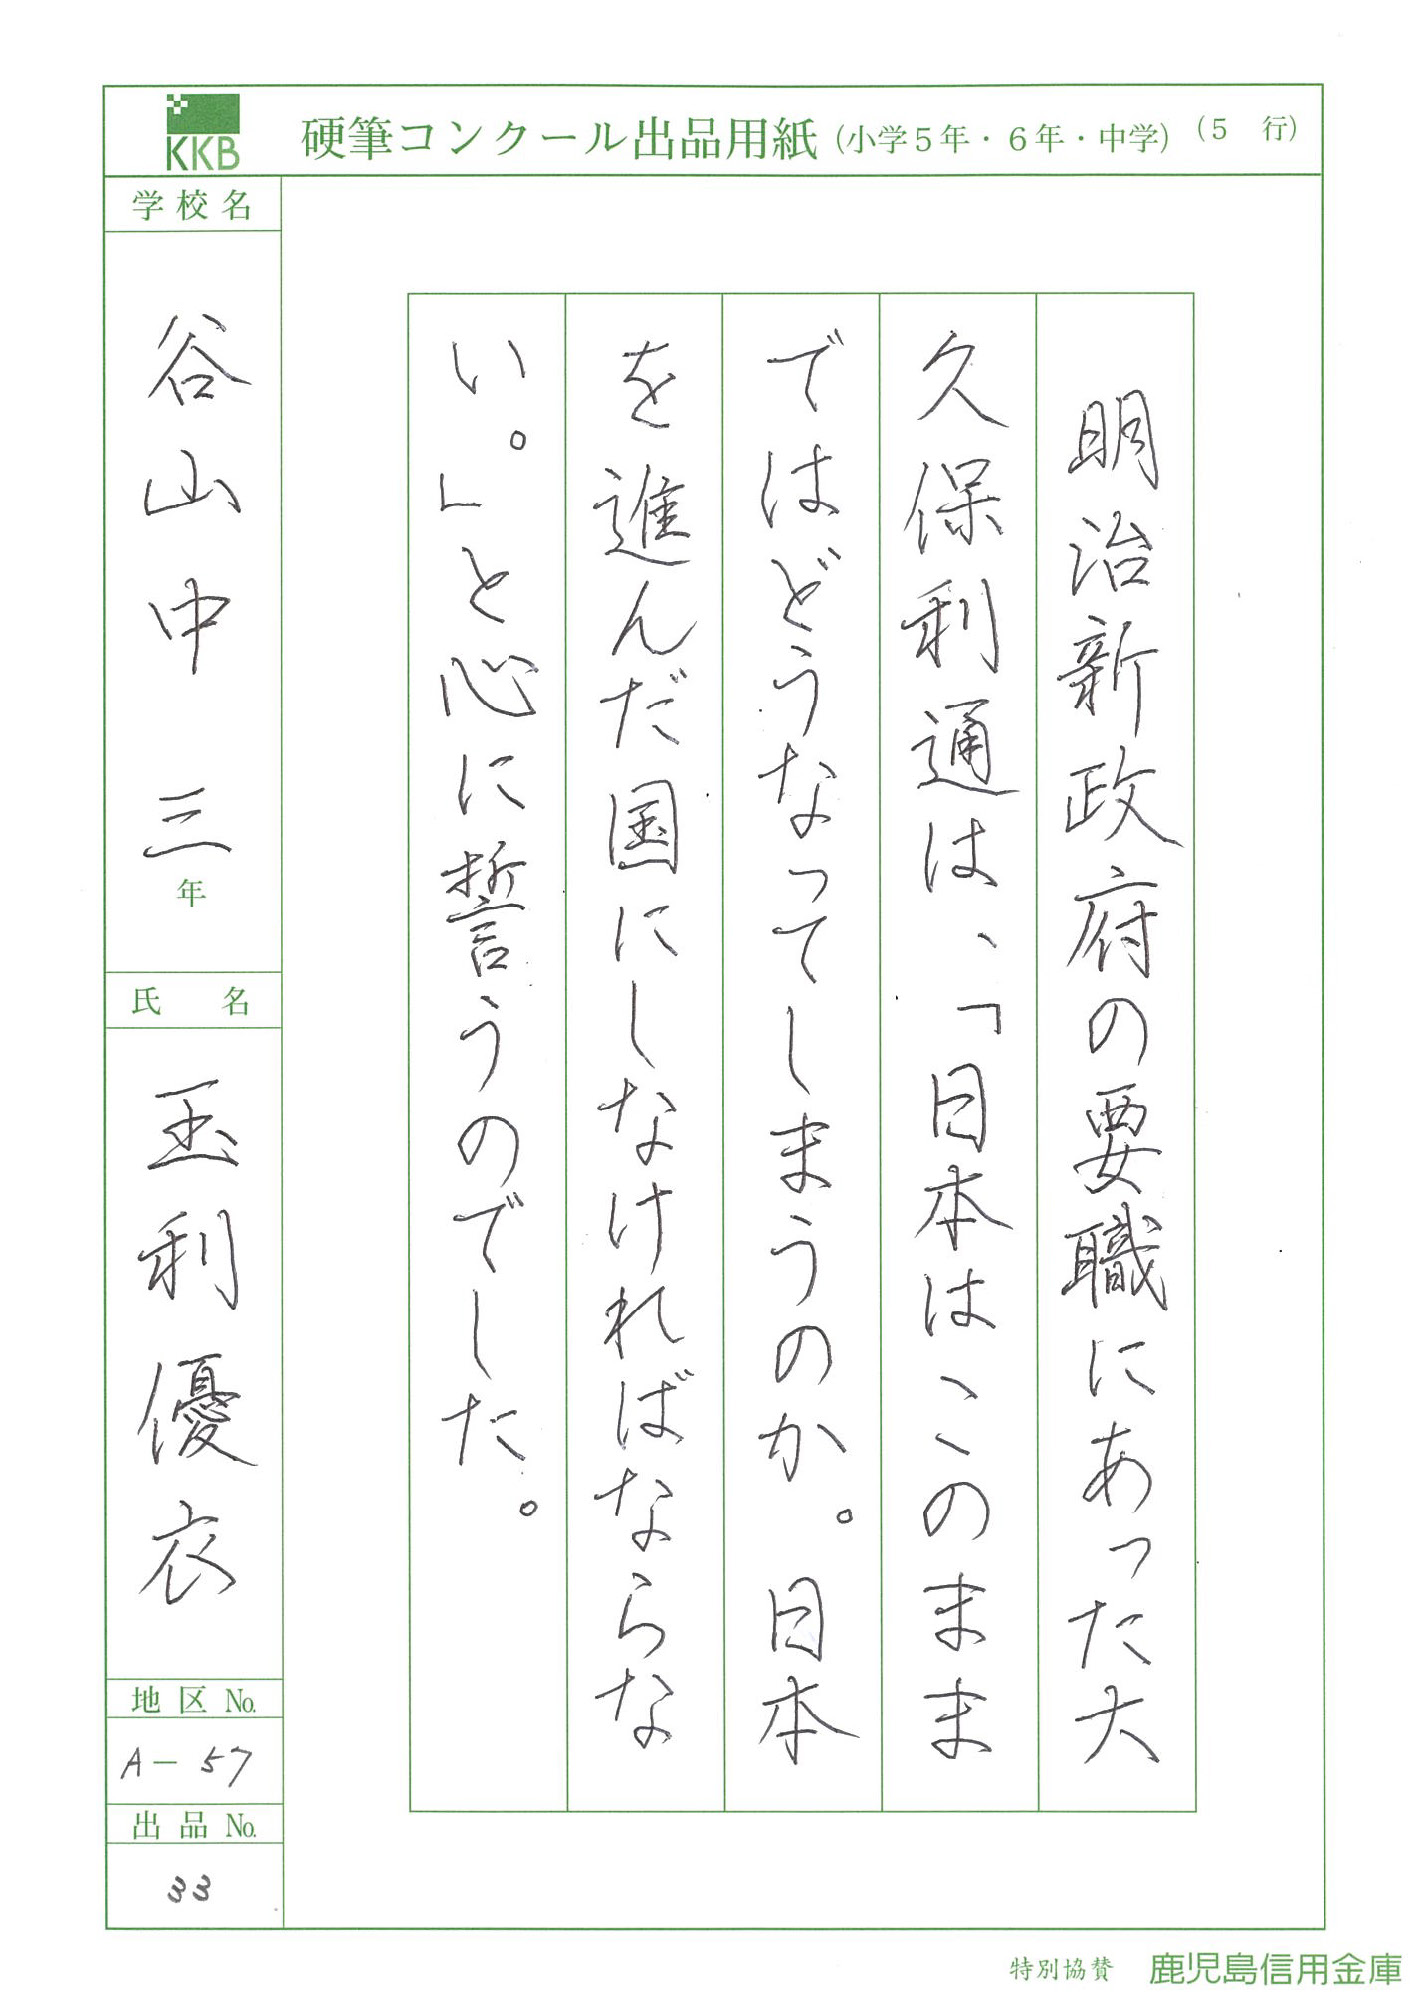 KKB
硬筆コンクール出品用紙（小学5年・6年・中学）（5 行）
明治新政府の要職にあった大
久保利通は、「日本はこのまま
ではどうなってしまうのか。日本
を進んだ国にしなければならな
い。」と心に誓うのでした。
学校名
谷山中 三年
氏 名
玉利優衣
地区 No.
A－57
出品 No.
33
特別協賛 鹿児島信用金庫